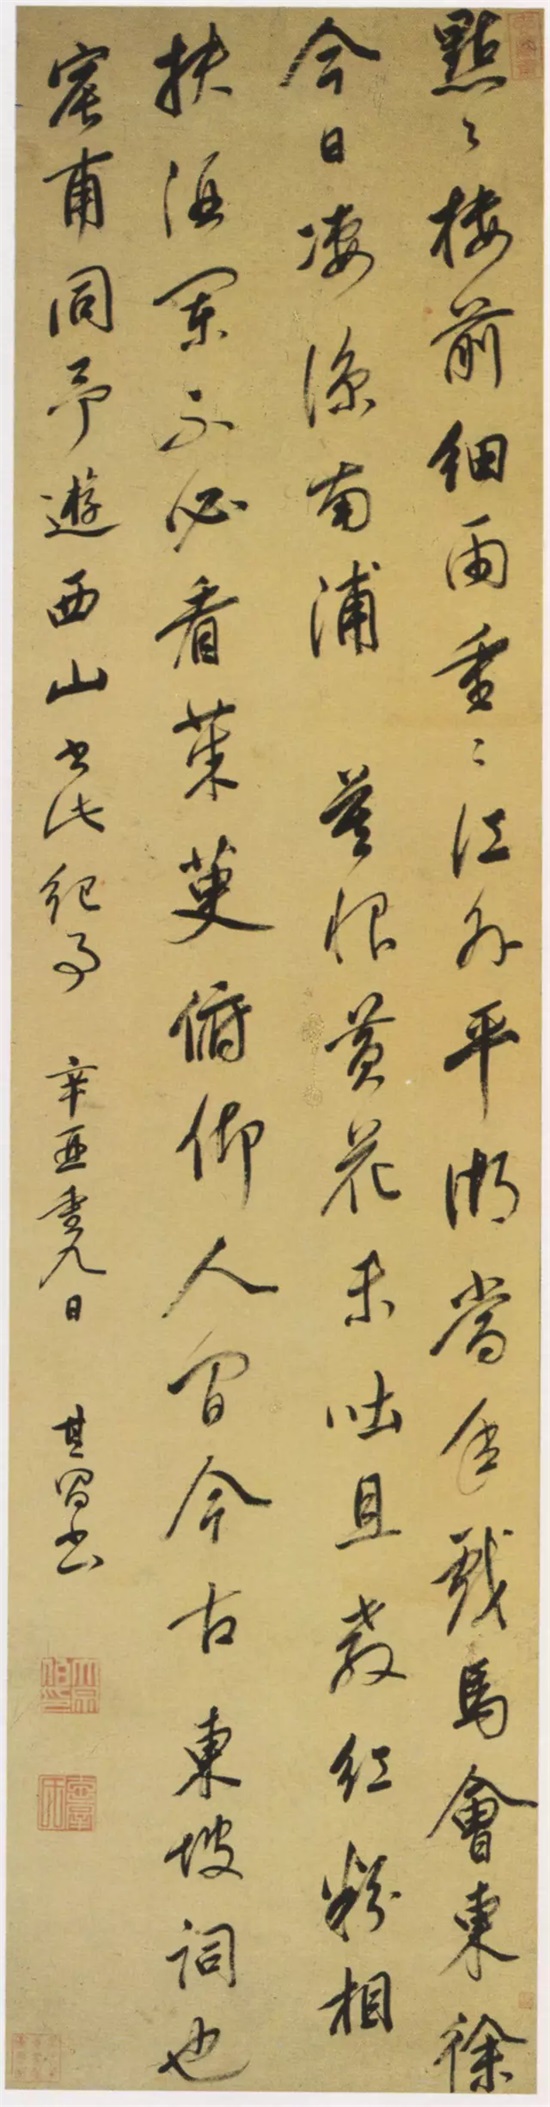 點〻樓前細雨重〻江外平湖當年戲馬會東徐
今日凄涼南浦 莫恨黃花未吐且教紅粉相
扶酒闌不必看茱萸俯仰人間今古 東坡詞也
甫同予遊西山書此紀事 辛亥重九日 其昌書